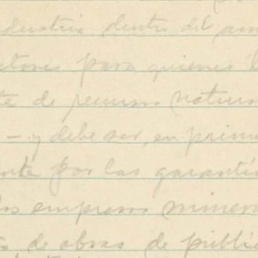 industria dentro del am
ctores para quienes l
te de recursos natura
- y debe ser, en prime
nte por las garantí
los empresas minera
s de obras de públic